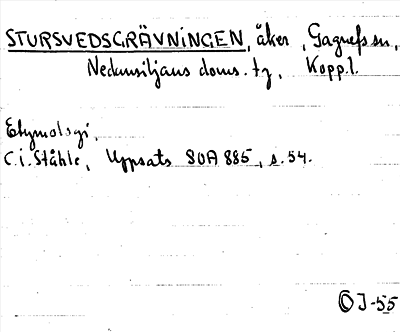 STURSVEDSGRÄVNINGEN, åker, Gagnefs sn,
Nedansiljans doms. tg, Kopp. l.
Etymologi,
C. I. Ståhle, Uppsats SOA 885, s. 54.
OJ-55